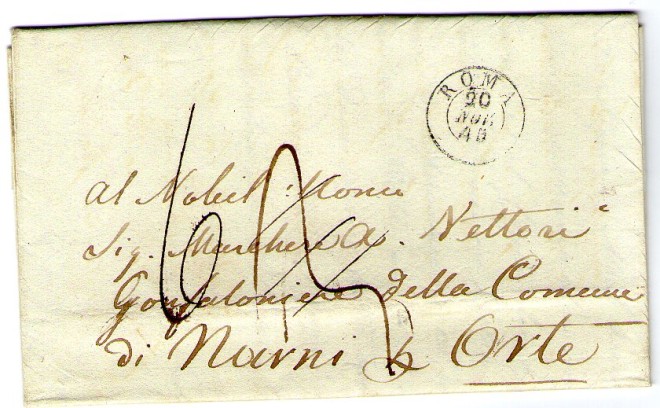 ROMA
20
NOV
Al Nobil Uomo
Sig. Marchese A. Nettori
Gonfaloniere della Comune
di Narni p Orte